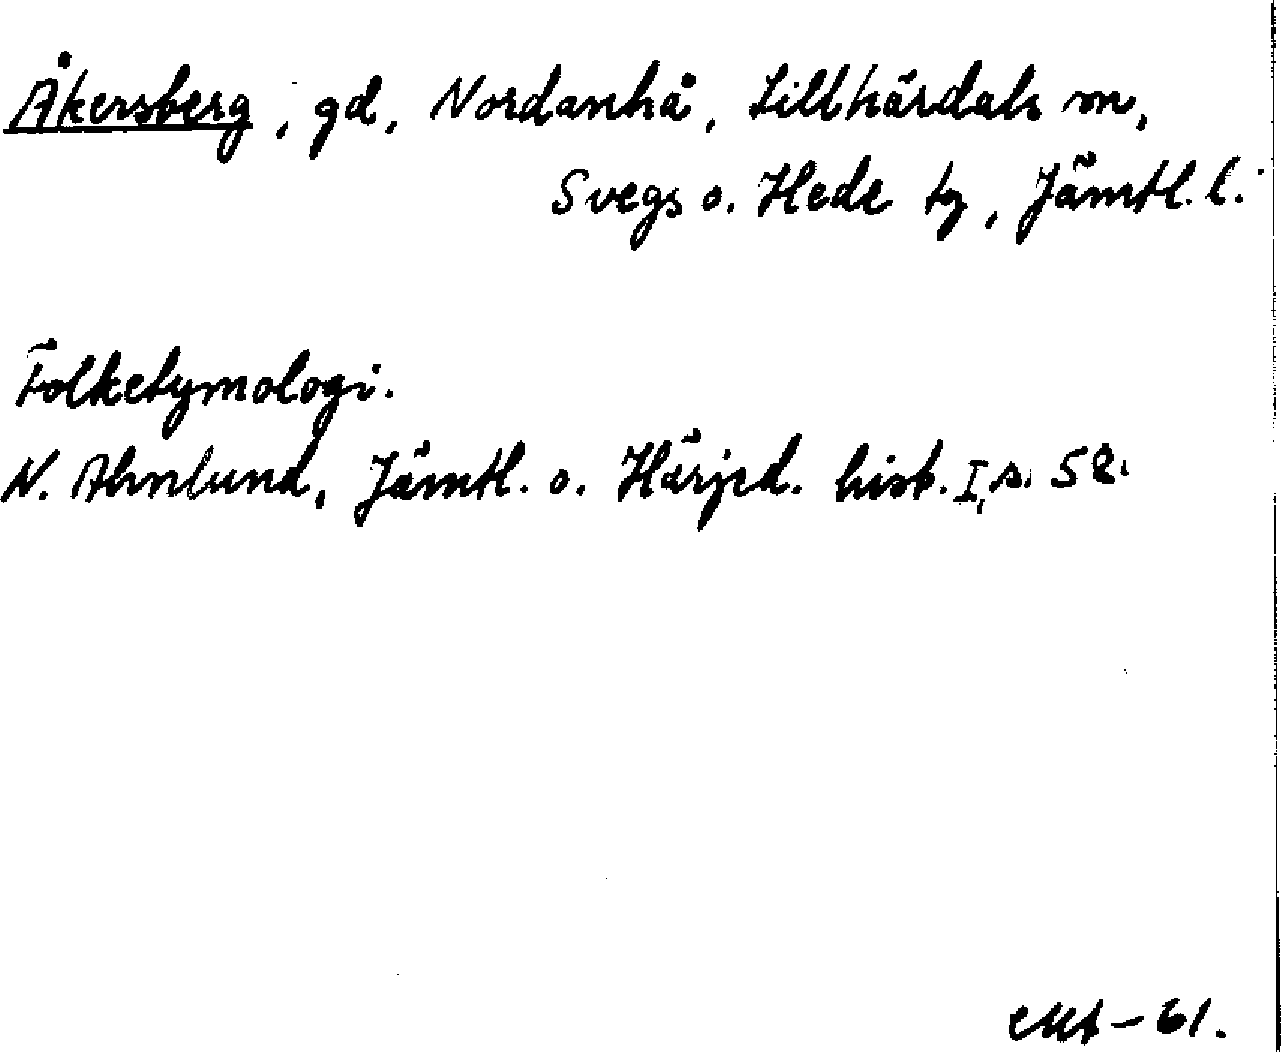 Åkersberg, gd, Nordanhå, Lillhärdals sn,
Svegs o. Hede tg, Jämtl. l.
Folketymologi.
N. Ahnlund, Jämtl. o. Härjed. hist. I, s. 52.
–61.